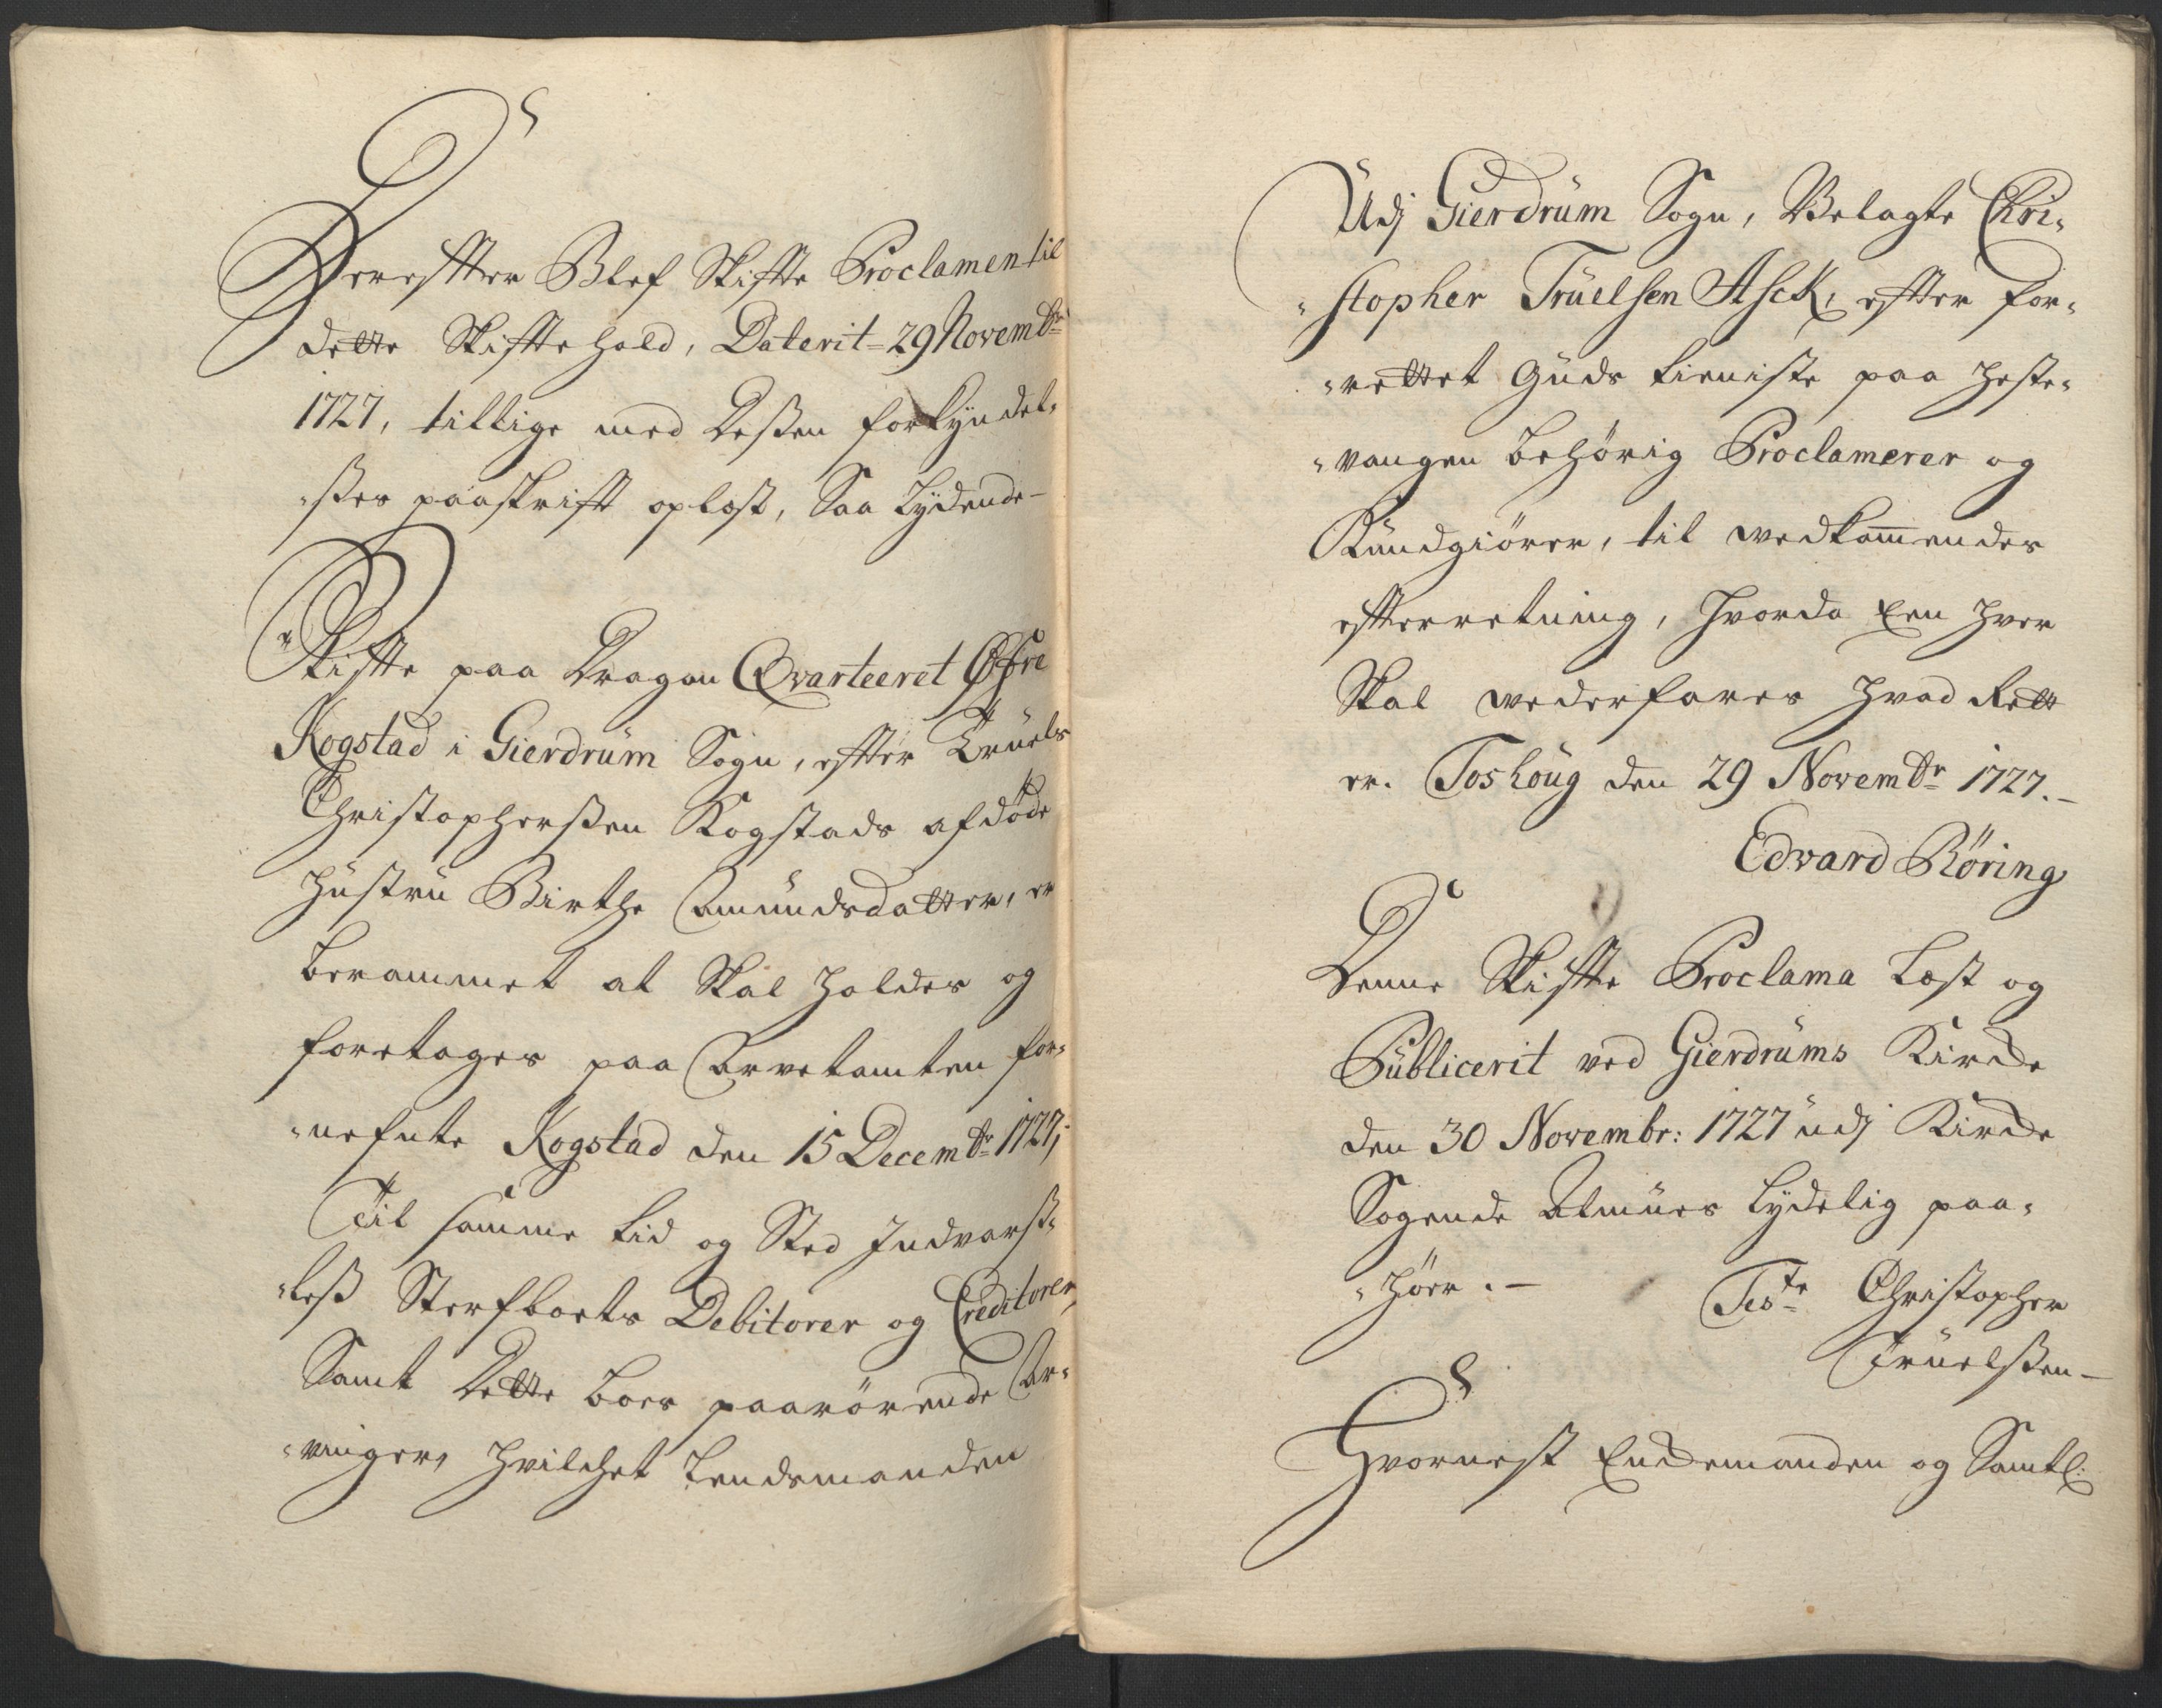 Derefter Blef Skifte Proclamen til
dette Skifte hold, Daterit 29 Novembr
1727, tillige med deßen forkyndel-
-ßes paaskrift oplæst, Saa Lydende-
Skifte paa Dragon Qvarteeret Øfre
Kogstad i Gierdrüm Sogn, efter Trüels
Christopherßen Kogstads afdøde
Hüstrü Birthe Amündsdatter, er
berammet at Skal holdes og
foretages paa Arvetomten for-
-nefnte Kogstad den 15 Decembr 1727,
Til samme tid og Sted Indvarß-
-leß Sterfboets Debitorer og Creditorer,
Samt dette boes paarörende Ar-
-vinger, hvilchet Lendsmanden
Üdj Gierdrüm Sogn, Velagte Chri-
-stopher Trüelsen Asck, efter for-
-rettet Güds tieniste paa Heste-
-vangen behörig Proclamerer og
Kündgiörer, til wedkommendes
efterretning, hvorda Een hver
Skal wederfares hvad Rett
er. Toshoüg den 29 Novembr 1727.-
Edvard Röring
Denne Skifte Proclama Læst og
Püblicerit ved Gierdrüms Kircke
den 30 Novembr: 1727 üdj Kircke
Sogende Almües Lydelig paa-
-hör.-
Teste Christopher
Trüelßen-
Hvornest Enckemanden og Samtl: